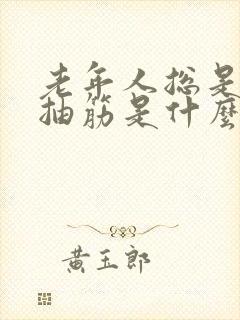 老年人总是
抽筋是什麼
黄玉郎